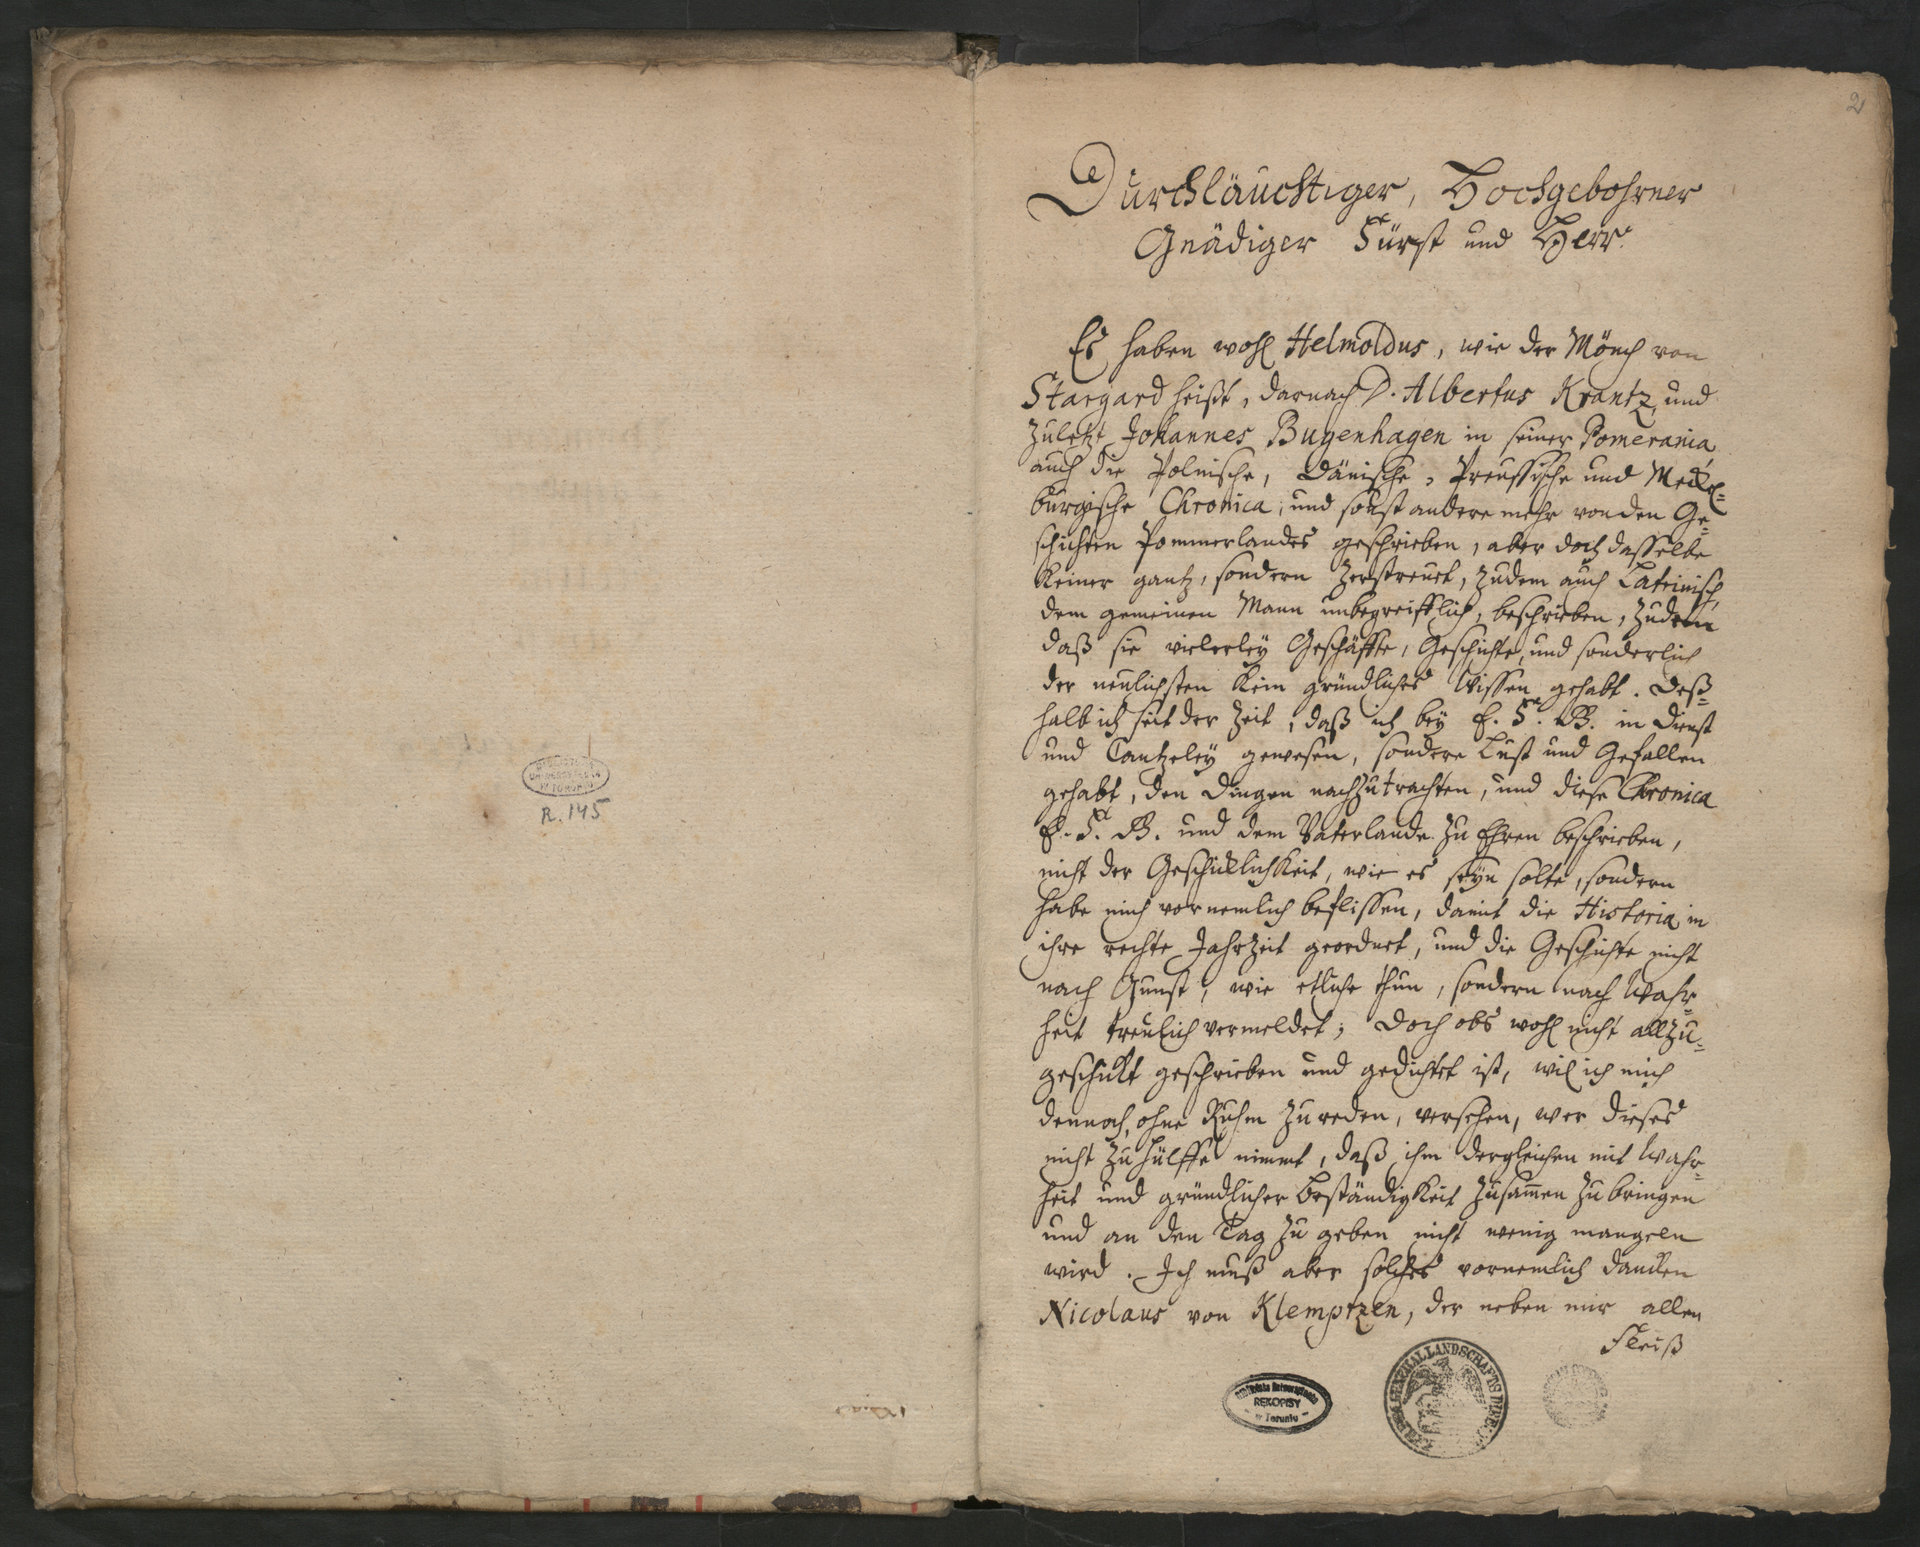 BIBLIOTEKA
UNIWERSYTECKA
W TORUNIU
R. 145
2
Durchläuchtiger, Hochgebohrner
Gnädiger Fürst und Herr.
Es haben wohl Helmoldus, wie der Mönch von
Stargard heißt, darnach D. Albertus Krantz, und
zuletzt Johannes Bugenhagen in seiner Pomerania
auch die Polnische, Dänische, Preussische und Meckel=
burgische Chronica, und sonst andere mehr von den Ge=
schichten Pommerlandes geschrieben, aber doch dasselbe
keiner gantz, sondern zerstreuet, zudem auch Lateinisch,
dem gemeinen Mann unbegreifflich, beschrieben, zudem
daß sie vielerley Geschäffte, Geschichte, und sonderlich
der neulichsten kein gründliches Wissen gehabt. Deß=
halb ich seit der Zeit, daß ich bey E. F. G. in Dienst
und Cantzeley gewesen, sondere Lust und Gefallen
gehabt, den Dingen nachzutrachten, und diese Chronica
E. F. G. und dem Vaterlande zu Ehren beschrieben,
nicht der Geschicklichkeit, wie es seyn solte, sondern
habe mich vornemlich beflissen, damit die Historia in
ihre rechte Jahrzeit geordnet, und die Geschichte nicht
nach Gunst, wie etliche thun, sondern nach Wahr=
heit treulich vermeldet; Doch obs wohl nicht allzu=
geschickt geschrieben und gedichtet ist, wil ich mich
dennoch, ohne Ruhm zu reden, versehen, wer dieses
nicht zu Hülffe nimmt, daß ihm dergleichen mit Wahr=
heit und gründlicher Beständigkeit zusam̄en zu bringen
und an den Tag zu geben nicht wenig mangeln
wird. Ich muß aber solches vornemlich dancken
Nicolaus von Klemptzen, der neben mir allen
Fleiß
Biblioteka Uniwersytecka
RĘKOPISY
w Toruniu
GENERALLANDSCHAFTS